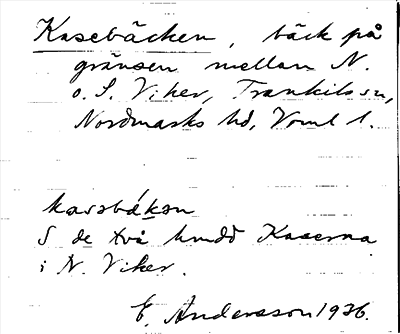 Kasebäcken, bäck på
gränsen mellan N.
o. S. Viker, Trankils sn,
Nordmarks hd, Vrml l.
kasabä́kən
S de två hundd Kaserna
i N. Viker.
E. Andersson 1926.